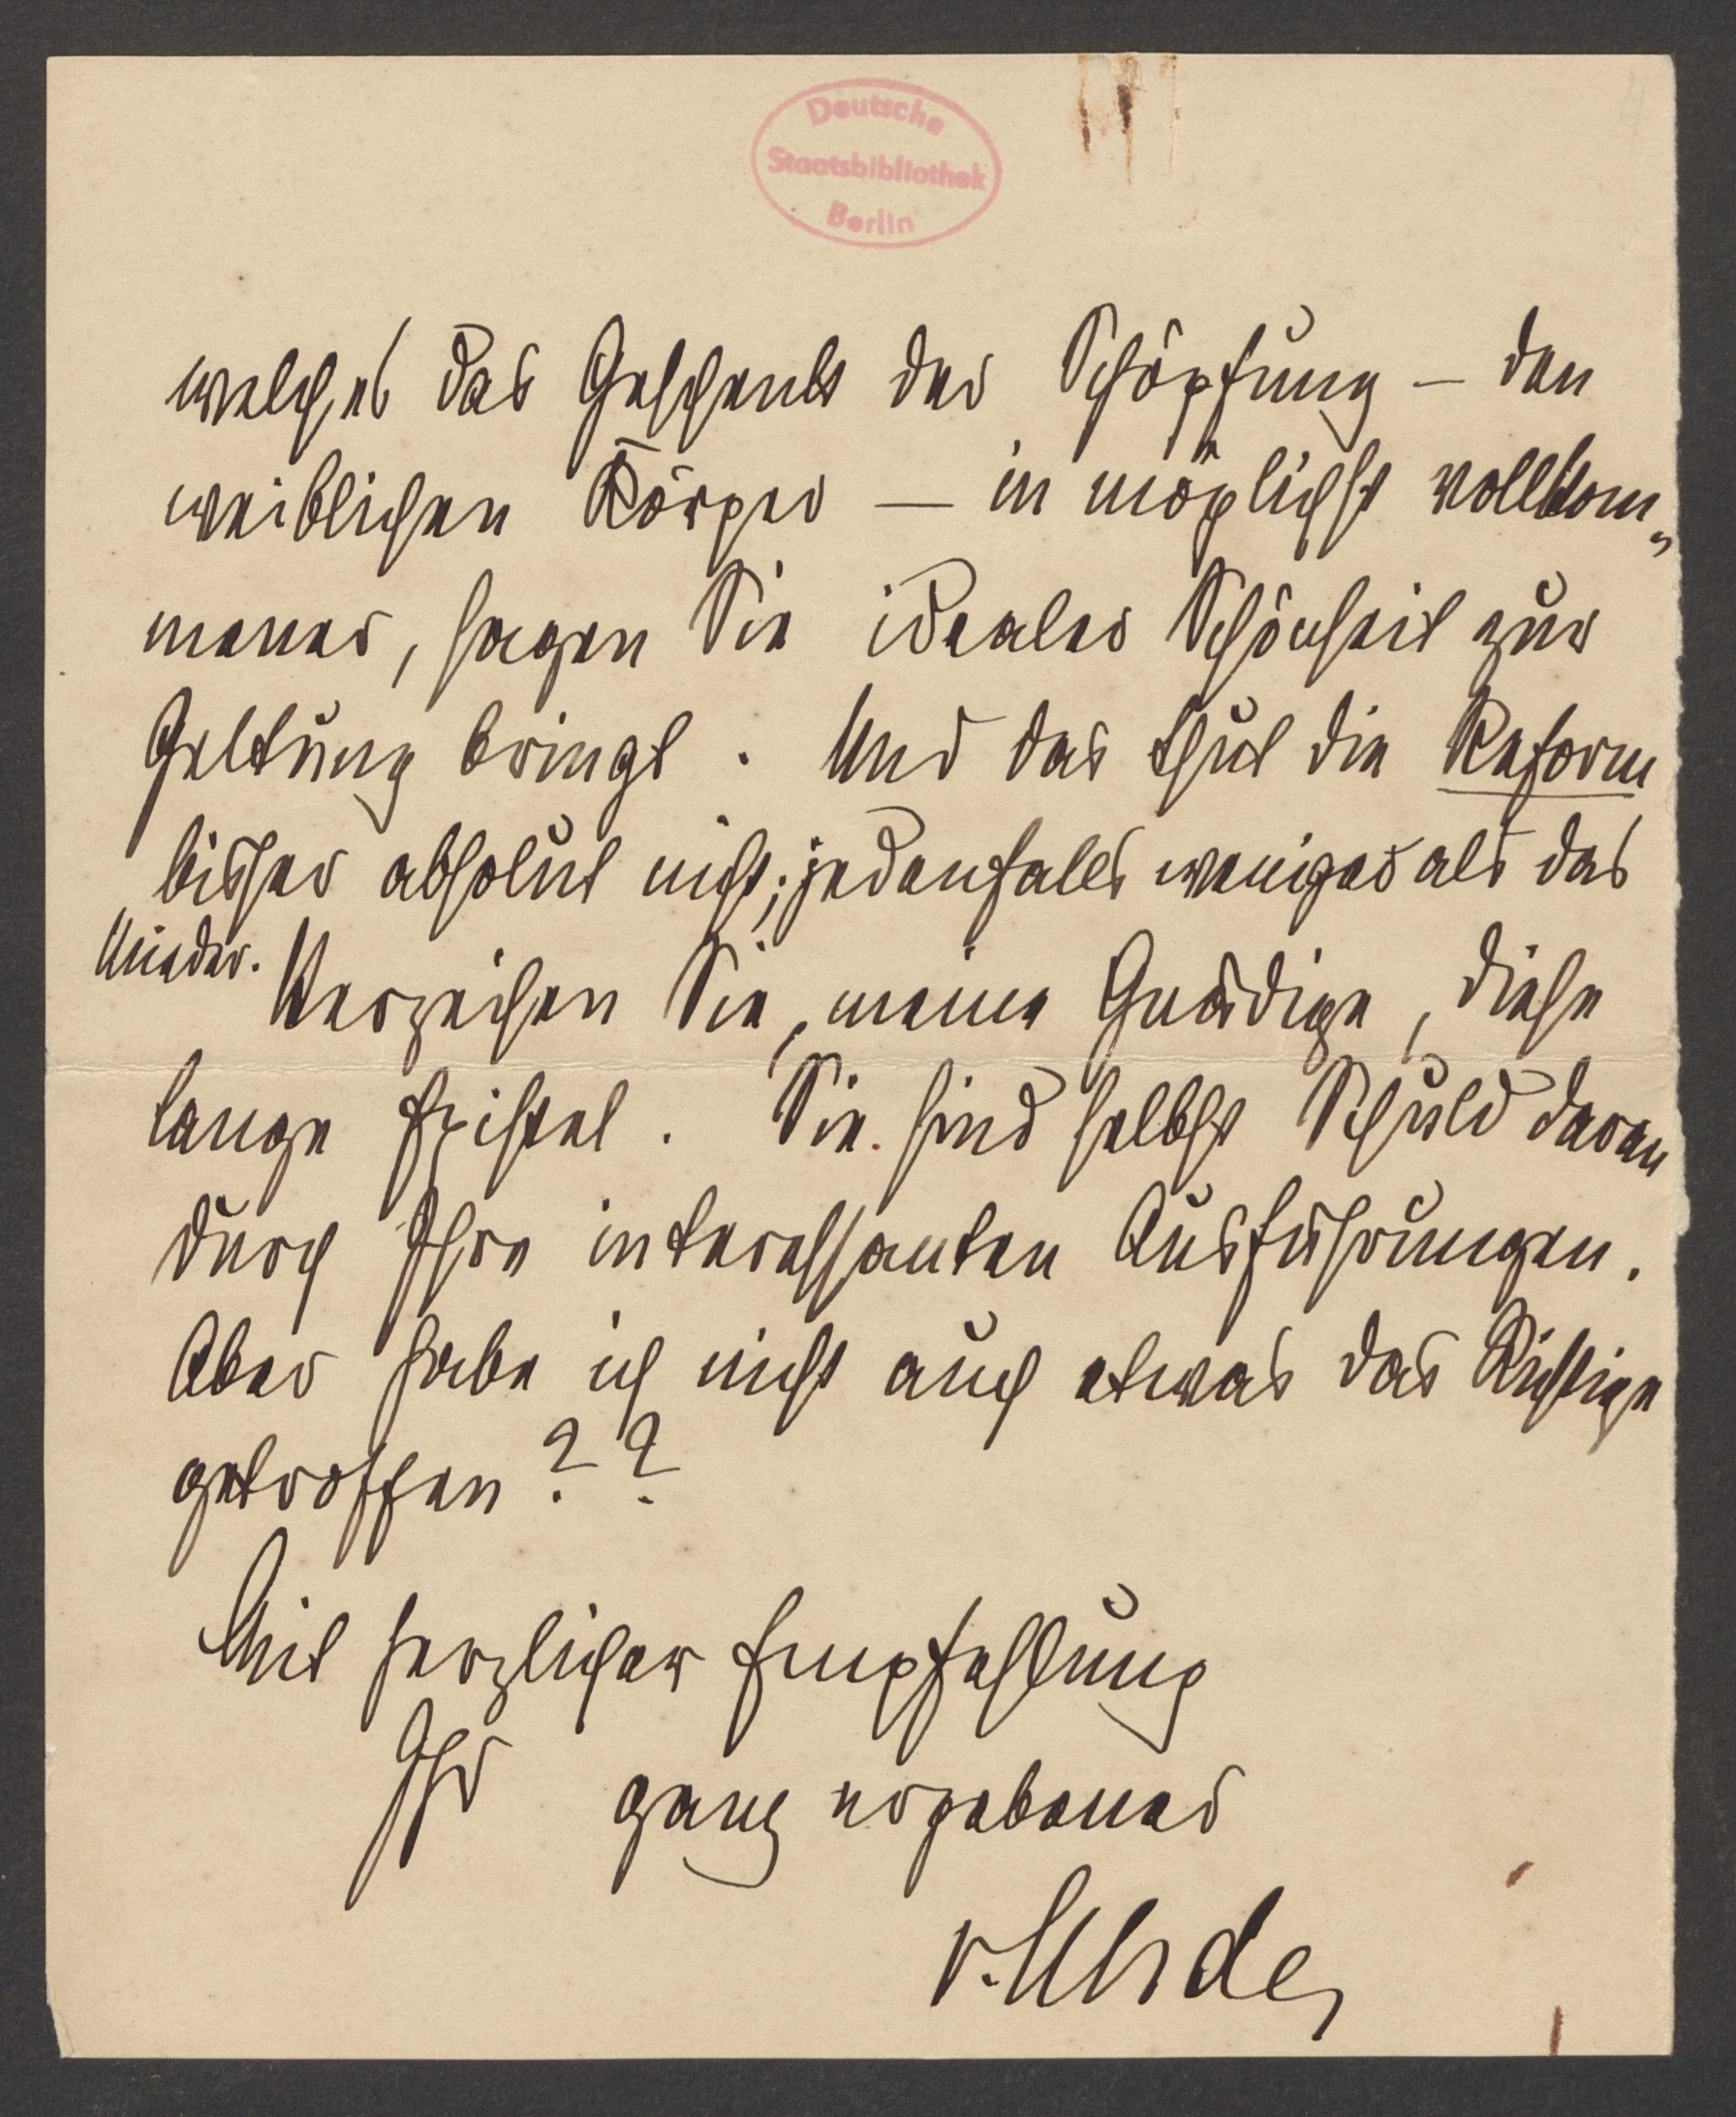 Deutsche
Staatsbibliothek
Berlin
welches das Geschenk der Schöpfung – den
weiblichen Körper — in möglichst vollkom„
mener, sagen Sie idealer Schönheit zur
Geltung bringt. Und das thut die Reform
bisher absolut nicht; jedenfalls weniger als das
Mieder.
Verzeihen Sie, meine Gnädige, diese
lange Epistel. Sie sind selbst Schuld daran
durch Ihre interessanten Ausführungen.
Aber habe ich nicht auch etwas das Richtige
getroffen??
Mit herzlicher Empfehlung
Ihr ganz ergebener
v. Uhde